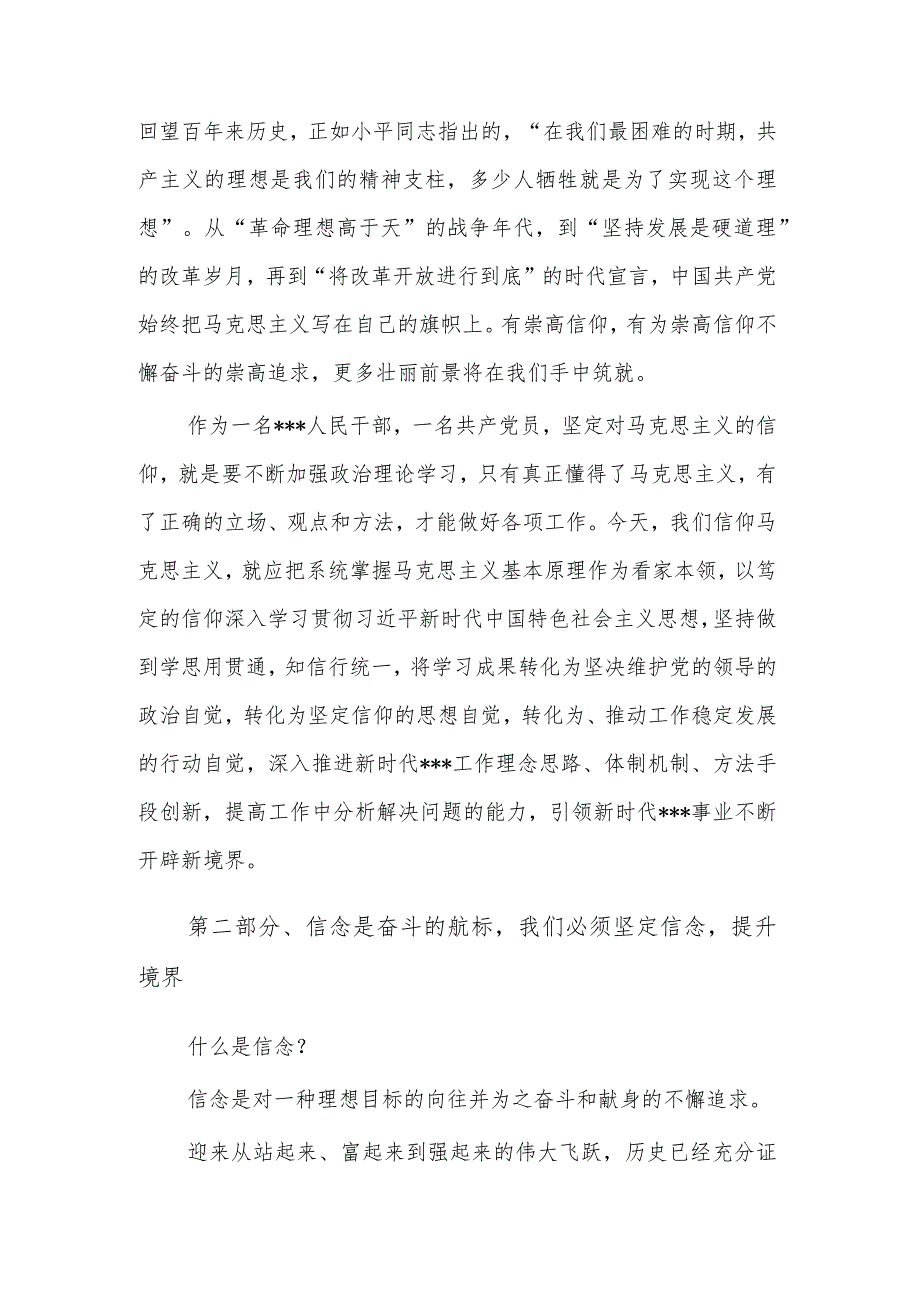 回望百年来历史，正如小平同志指出的，“在我们最困难的时期，共
产主义的理想是我们的精神支柱，多少人牺牲就是为了实现这个理
想”。从“革命理想高于天”的战争年代，到“坚持发展是硬道理”
的改革岁月，再到“将改革开放进行到底”的时代宣言，中国共产党
始终把马克思主义写在自己的旗帜上。有崇高信仰，有为崇高信仰不
懈奋斗的崇高追求，更多壮丽前景将在我们手中筑就。
作为一名***人民干部，一名共产党员，坚定对马克思主义的信
仰，就是要不断加强政治理论学习，只有真正懂得了马克思主义，有
了正确的立场、观点和方法，才能做好各项工作。今天，我们信仰马
克思主义，就应把系统掌握马克思主义基本原理作为看家本领，以笃
定的信仰深入学习贯彻习近平新时代中国特色社会主义思想，坚持做
到学思用贯通，知信行统一，将学习成果转化为坚决维护党的领导的
政治自觉，转化为坚定信仰的思想自觉，转化为、推动工作稳定发展
的行动自觉，深入推进新时代***工作理念思路、体制机制、方法手
段创新，提高工作中分析解决问题的能力，引领新时代***事业不断
开辟新境界。
第二部分、信念是奋斗的航标，我们必须坚定信念，提升
境界
什么是信念？
信念是对一种理想目标的向往并为之奋斗和献身的不懈追求。
迎来从站起来、富起来到强起来的伟大飞跃，历史已经充分证